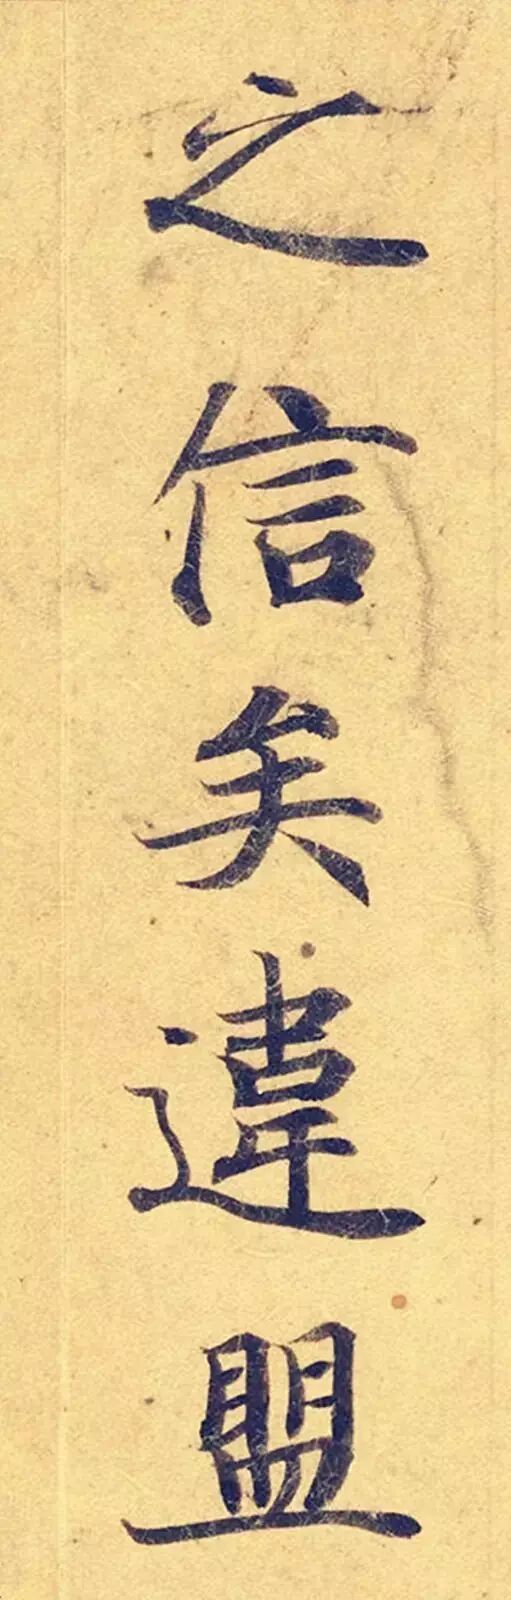 之信矣違盟